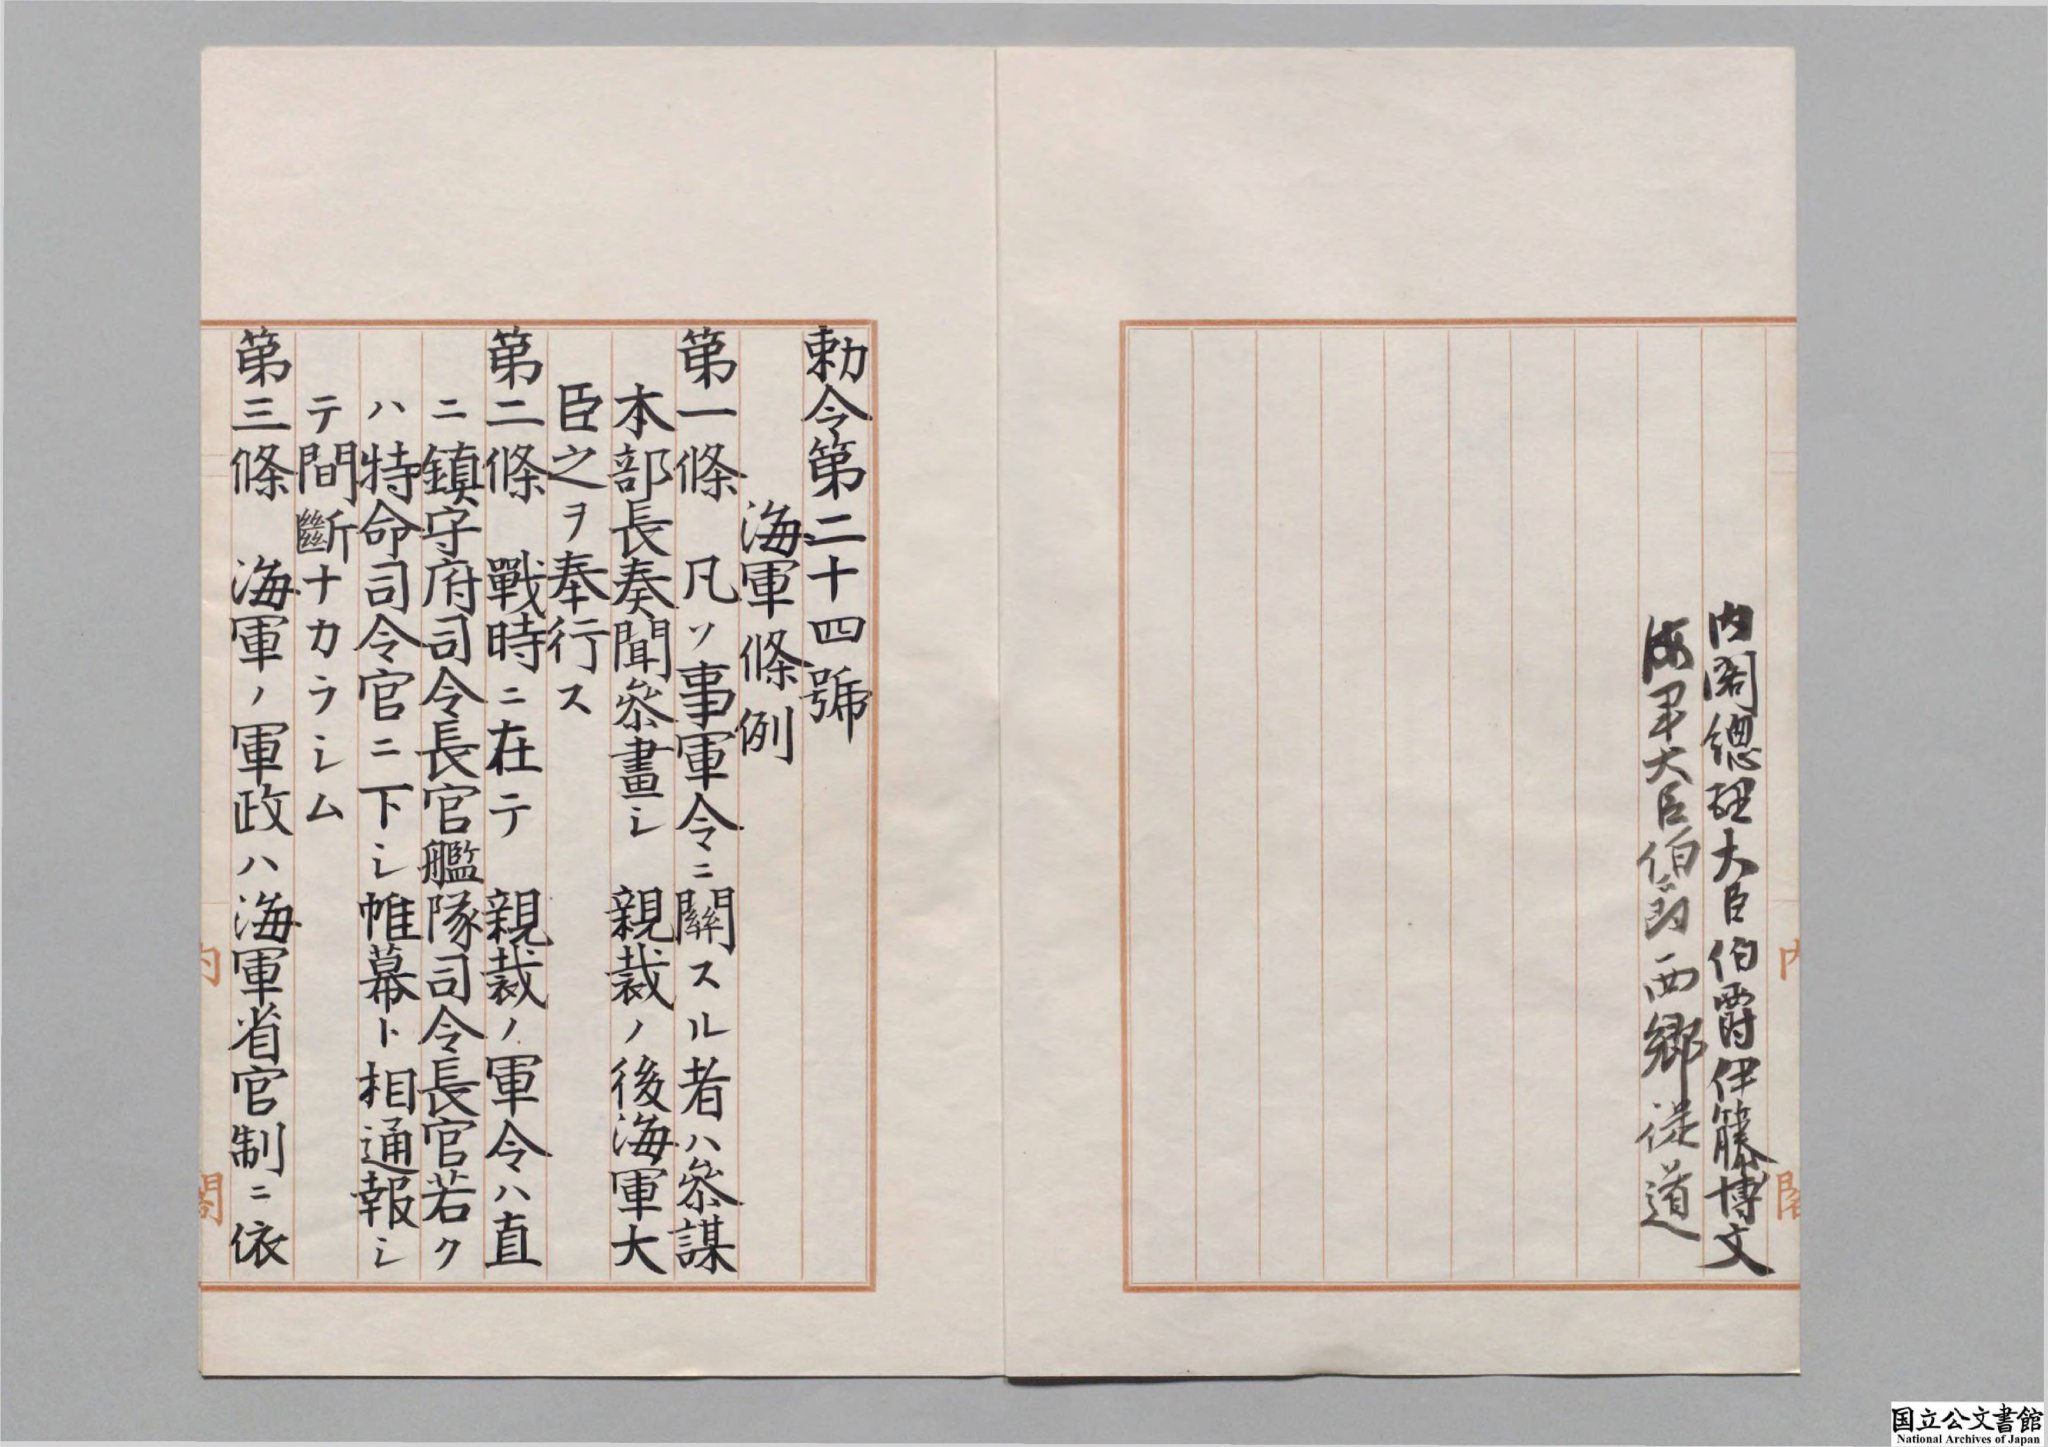 内閣總理大臣伯爵伊藤博文
海軍大臣伯爵西郷從道
内閣
勅令第二十四號
海軍條例
第一條　凡ソ事軍令ニ關スル者ハ參謀
本部長奏聞參畫シ　親裁ノ後海軍大
臣之ヲ奉行ス
第二條　戰時ニ在テ　親裁ノ軍令ハ直
ニ鎮守府司令長官艦隊司令長官若ク
ハ特命司令官ニ下シ帷幕ト相通報シ
テ間斷ナカラシム
第三條　海軍ノ軍政ハ海軍省官制ニ依
内閣
国立公文書館
National Archives of Japan